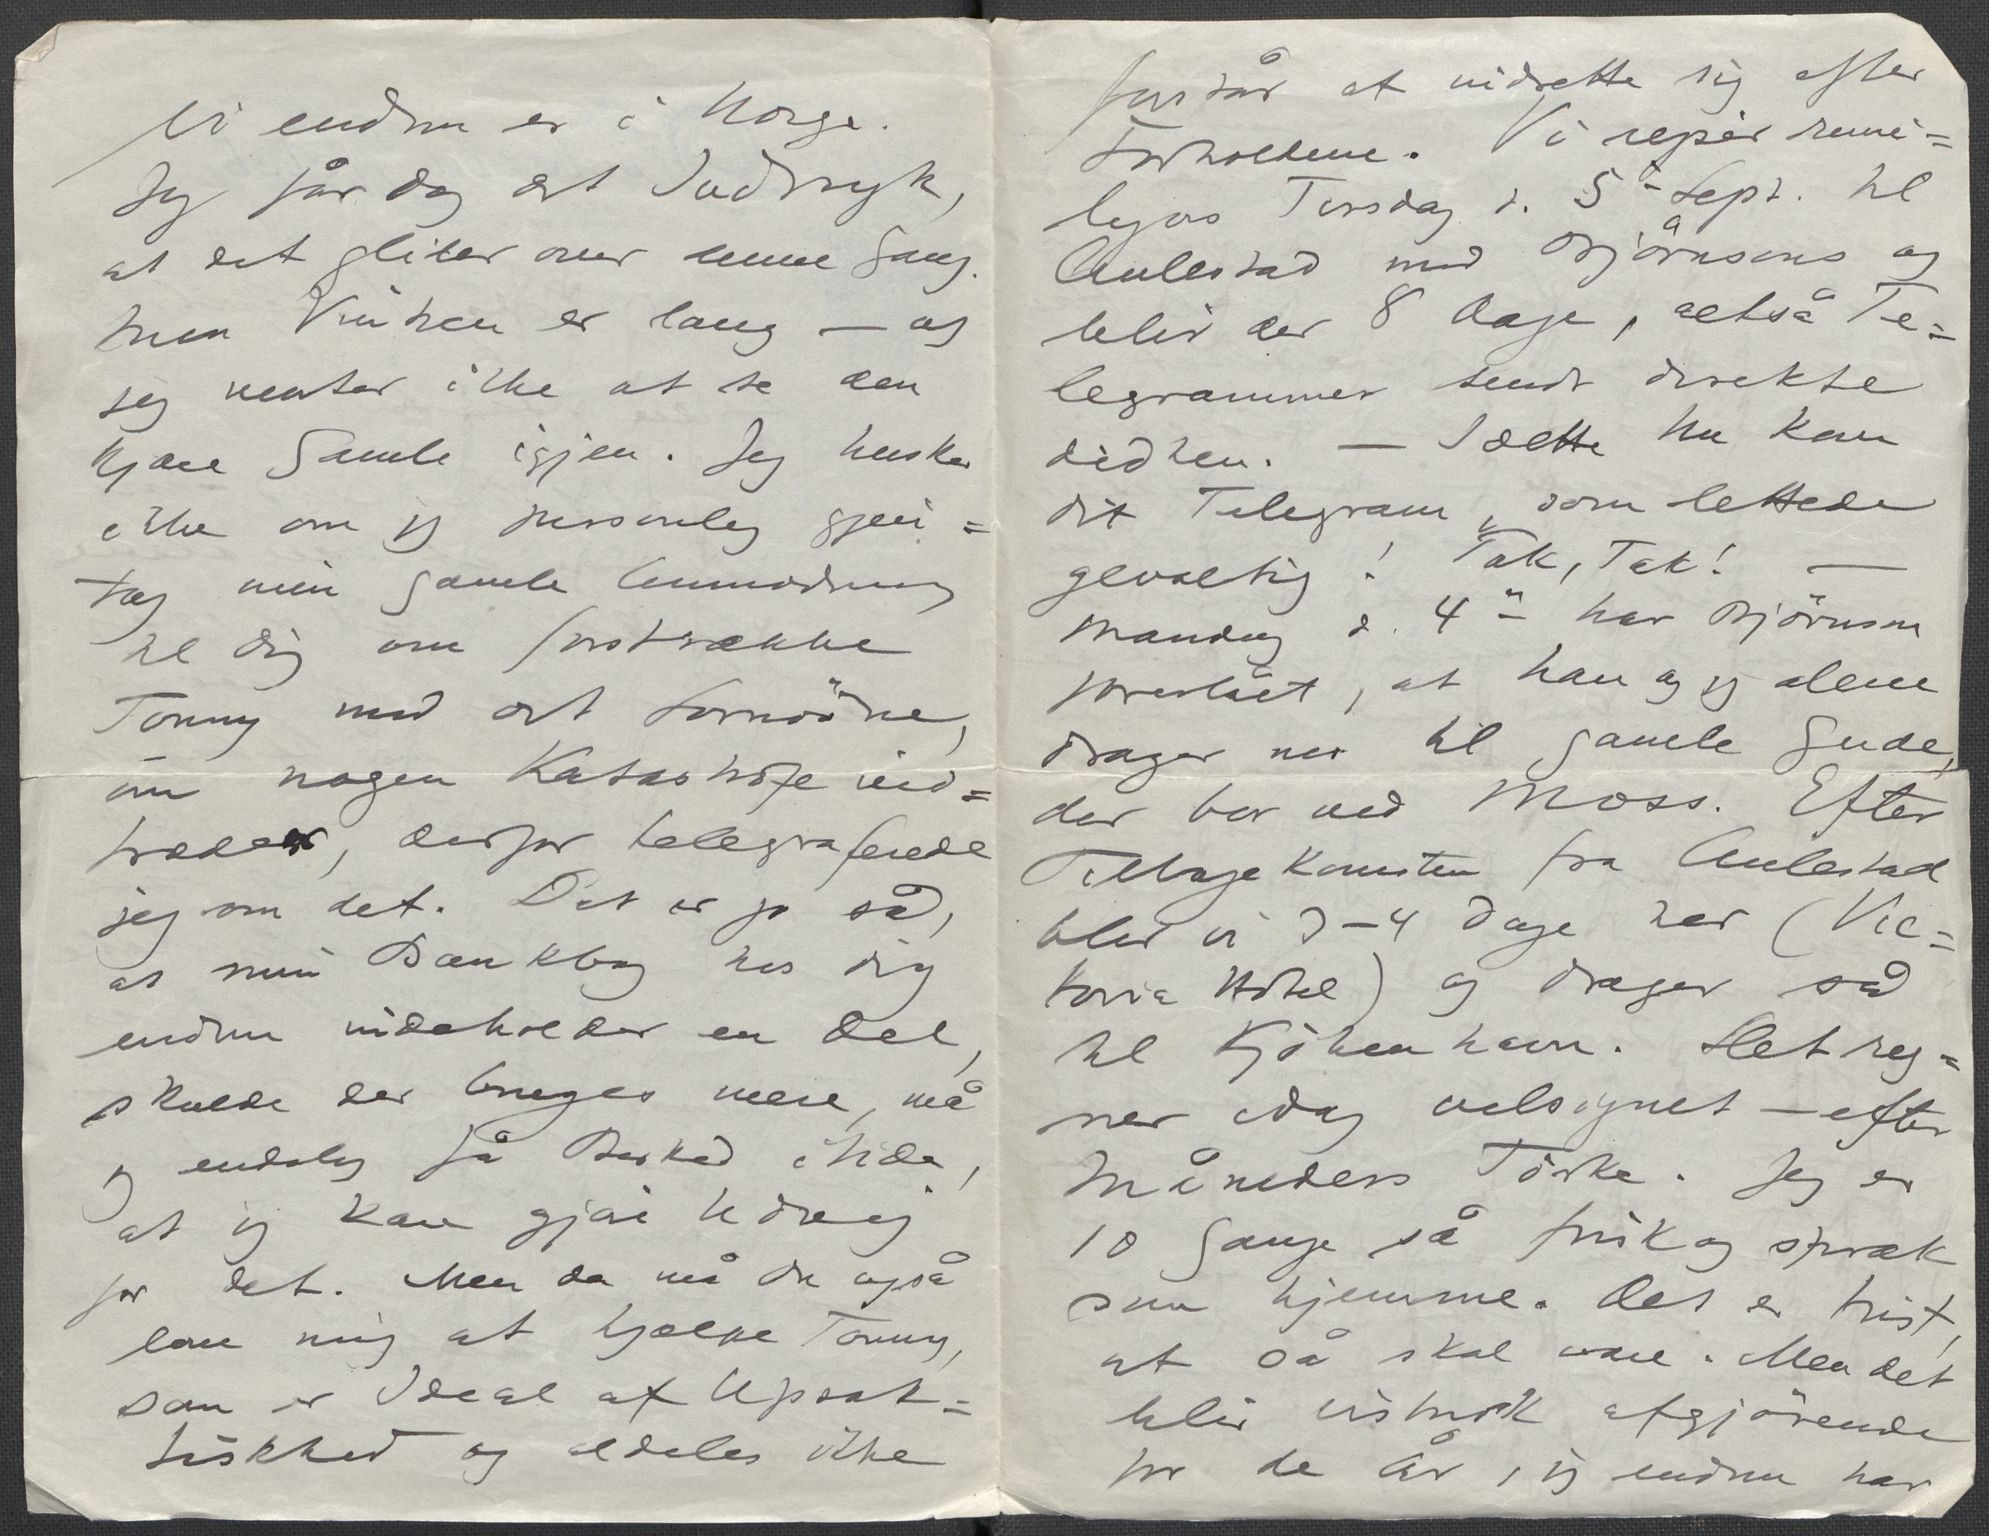 Vi endnu er i Norge.
Jeg får dog det Indtryk,
at det glider over denne Gang.
Men Vinteren er lang — og
jeg venter ikke at se den
kjære Gamle igjen. Jeg husker
ikke om jeg personlig gjen=
tog min gamle Anmodning
til dig om forstrække
Tonny med det Fornødne,
om nogen Katastrofe ind=
træder, derfor telegraferede
jeg om det. Det er jo så,
at min Bankbog hos dig
endnu indeholder en Del,
skulde der bruges mere, må
jeg endelig få Besked itide,
at jeg kan gjøre Udvej
for det. Men da må du også
love mig at hjælpe Tonny,
som er Ideal af Uprak=
tiskhed og aldeles ikke
forstår at indrette sig efter
Forholdene. Vi rejser rime=
ligvis Tirsdag d. 5te Sept. til
Aulestad med Bjørnsons og
blir der 8 Dage, altså Te=
legrammer sendt direkte
didhen. — I dette Nu kom
dit Telegram, som lettede
gevaltig! Tak, Tak! —
Mandag d. 4de har Bjørnson
foreslået, at han og jeg alene
drager ner til gamle Gude,
der bor ved Moss. Efter
Tilbagekomsten fra Aulestad
blir vi 3–4 Dage her (Vic=
toria Hôtel) og drager så
til Kjøbenhavn. Det reg=
ner idag velsignet — efter
Måneders Tørke. Jeg er
10 Gange så frisk og spræk
som hjemme. Det er trist,
at så skal være. Men det
blir vistnok afgjørende
for de År, jeg endnu har